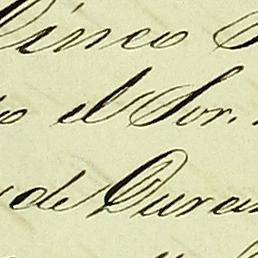 Cinco
el Sor.
de Duran